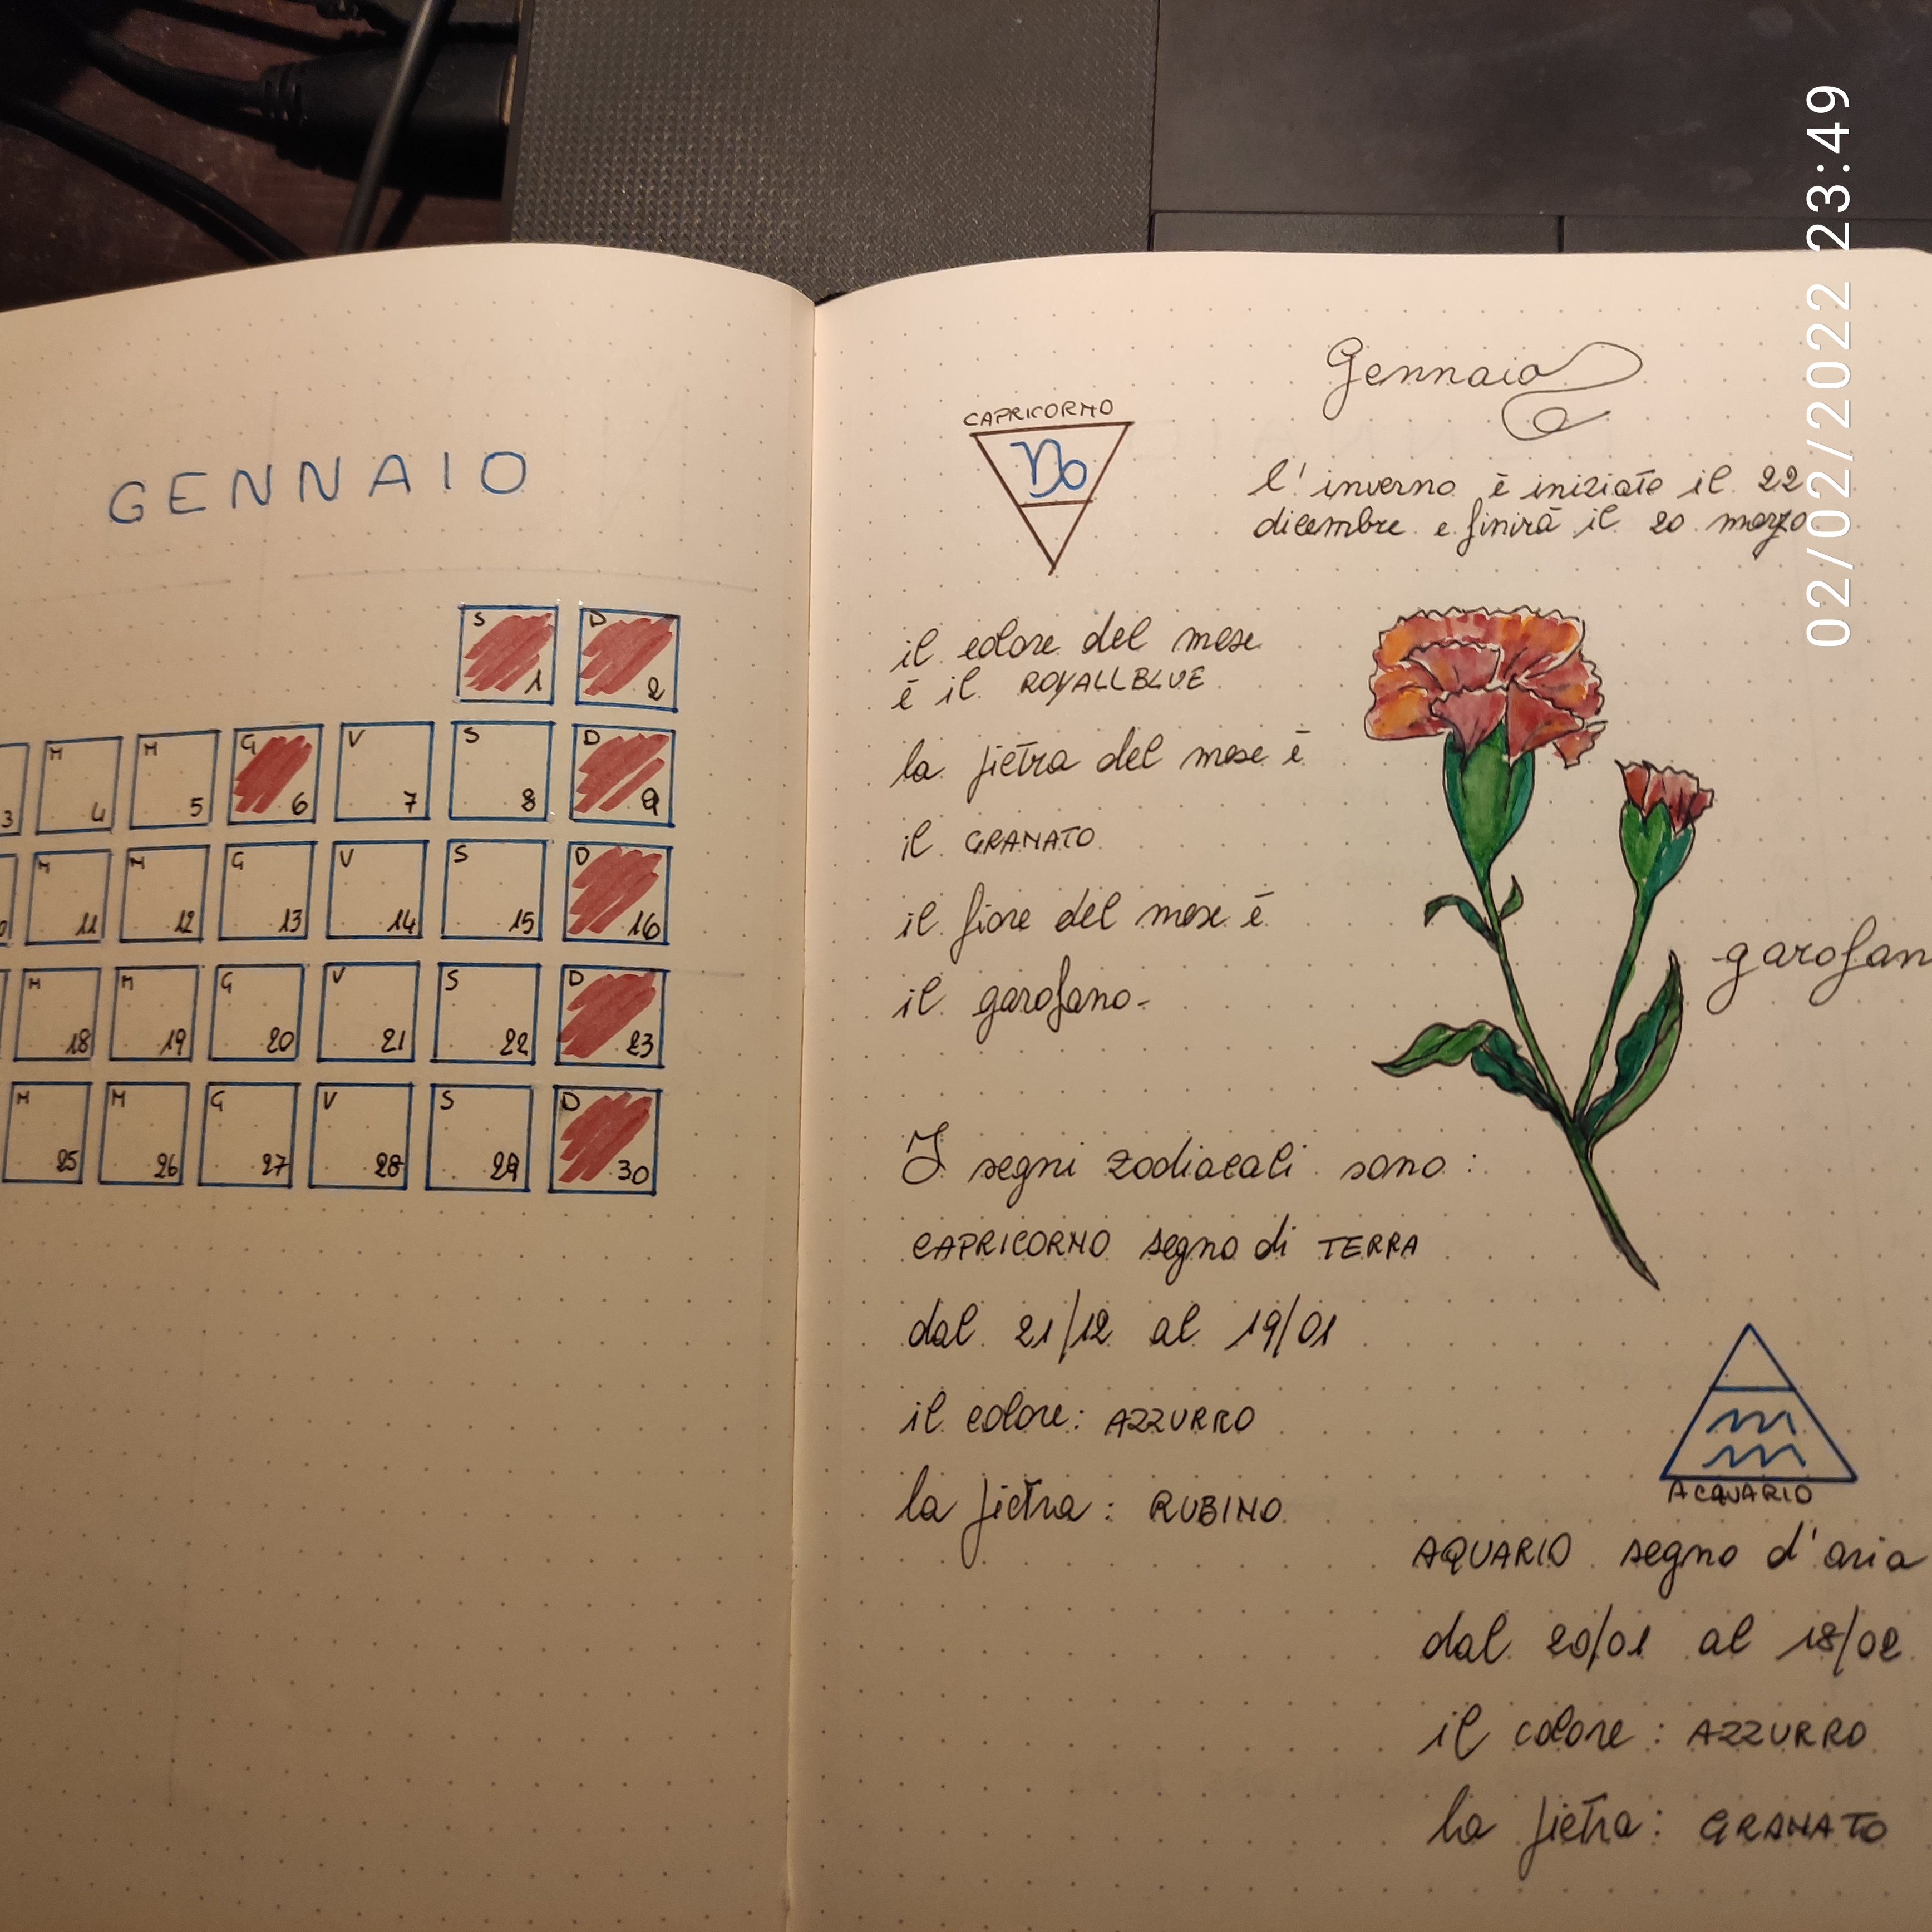 GENNAIO
S 1 D 2
3 M 4 M 5 G 6 V 7 S 8 D 9
M 11 M 12 G 13 V 14 S 15 D 16
M 18 M 19 G 20 V 21 S 22 D 23
M 25 M 26 G 27 V 28 S 29 D 30
Gennaio
CAPRICORNO
l'inverno è iniziato il 22
dicembre e finirà il 20 marzo
il colore del mese
è il ROYALLBLUE
la pietra del mese è
il GRANATO
il fiore del mese è
il garofano.
garofan
I segni zodiacali sono:
CAPRICORNO segno di TERRA
dal 21/12 al 19/01
il colore: AZZURRO
la pietra: RUBINO
ACQUARIO
AQUARIO segno d'aria
dal 20/01 al 18/02
il colore: AZZURRO
la pietra: GRANATO
02/02/2022 23:49